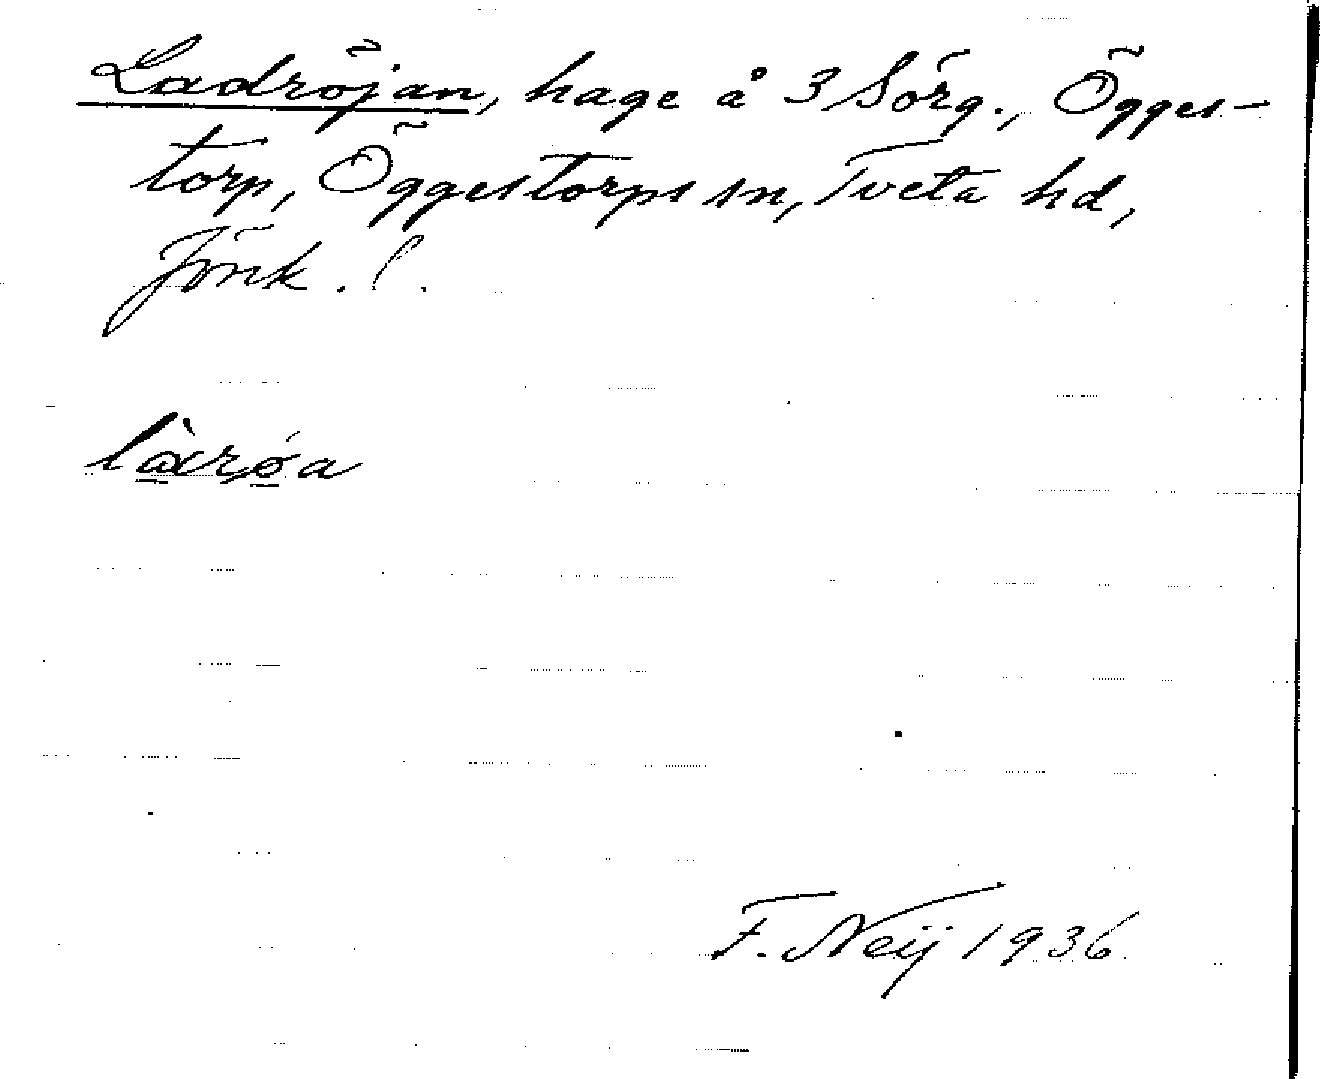 Ladröjan, hage å 3 Sörg., Ögges-
torp, Öggestorps sn, Tveta hd,
Jönk. l.
làrǿa
F. Neij 1936